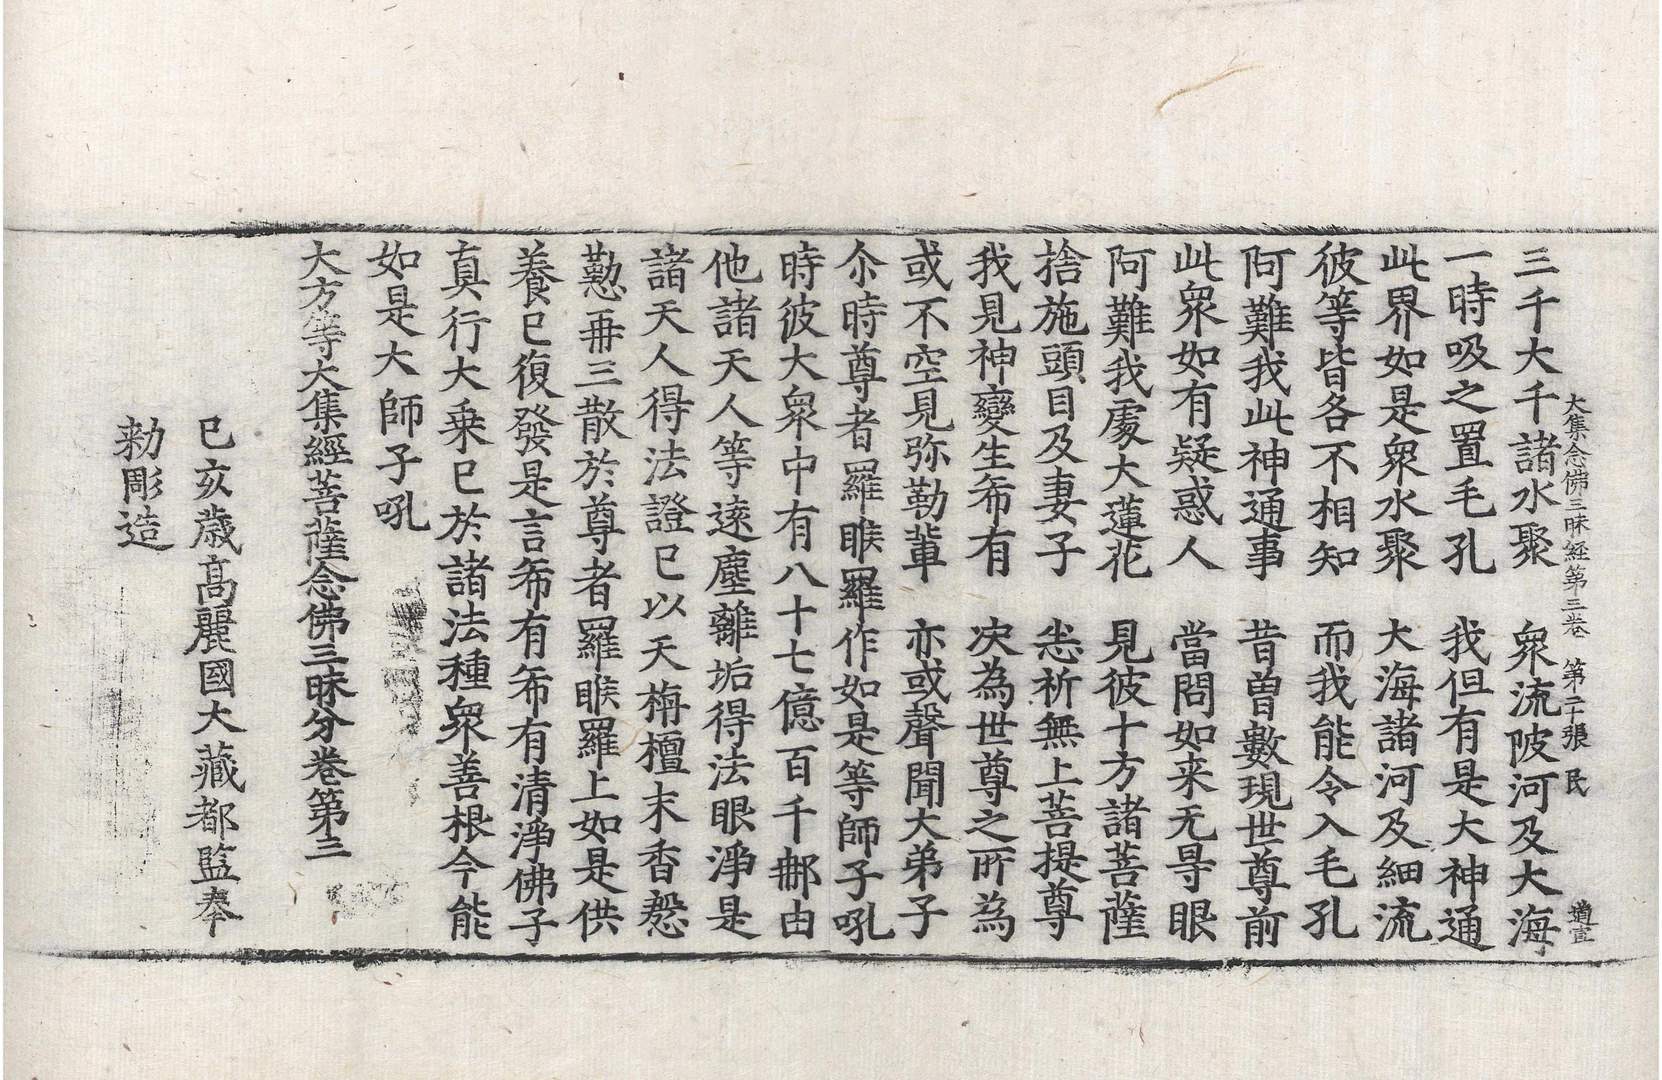 大集念佛三昧経第三卷　第二十張　民　道宣
三千大千諸水聚　衆流陂河及大海
一時吸之置毛孔　我但有是大神通
此界如是衆水聚　大海諸河及細流
彼等皆各不相知　而我能令入毛孔
阿難我此神通事　昔曽數現世尊前
此衆如有疑惑人　當問如来无㝵眼
阿難我處大蓮花　見彼十方諸菩薩
捨施頭目及妻子　悉祈無上菩提尊
我見神變生希有　决為世尊之所為
或不空見弥勒輩　亦或聲聞大弟子
尒時尊者羅睺羅作如是等師子吼
時彼大衆中有八十七億百千那由
他諸天人等遠塵離垢得法眼淨是
諸天人得法證已以天栴檀末香慇
懃再三散於尊者羅睺羅上如是供
養已復發是言希有希有清淨佛子
真行大乗已於諸法種衆善根今能
如是大師子吼
大方等大集經菩薩念佛三昧分卷第三
己亥歳高麗國大藏都監奉
勑彫造